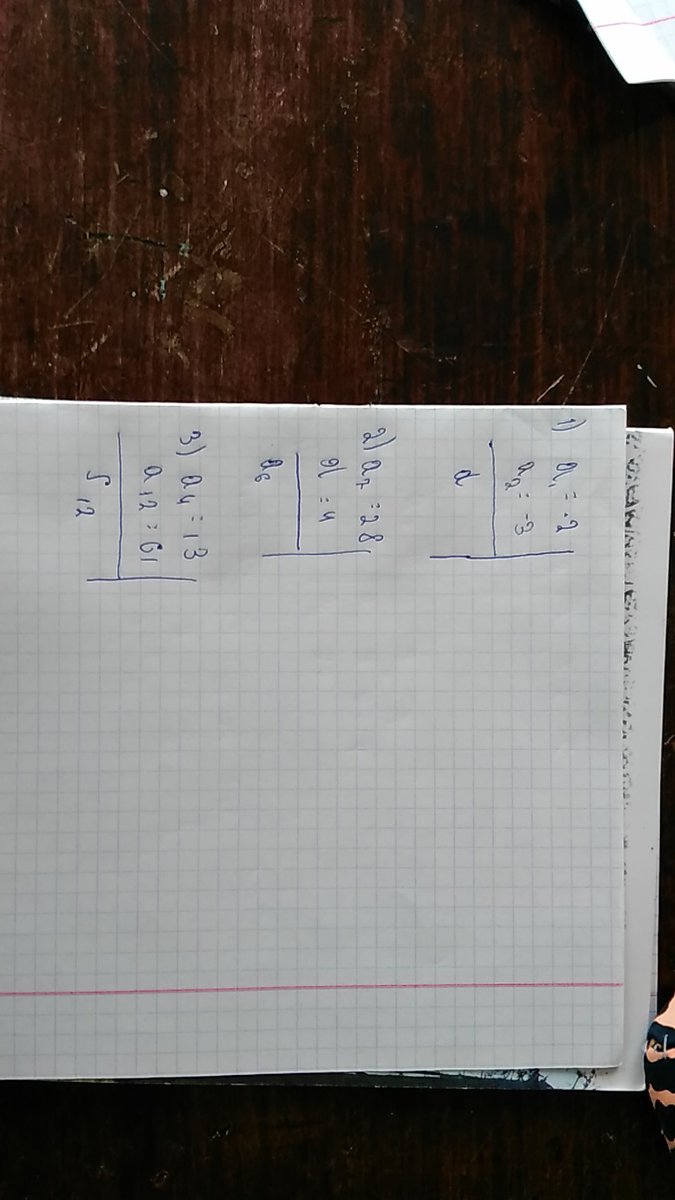 1) a₁ = -2
a₂ = -3
d
2) a₇ = 28
d = 4
a₆
3) a₄ = 13
a₁₂ = 61
S₁₂